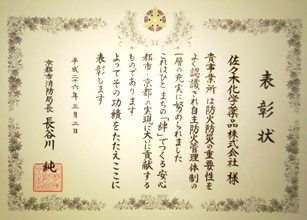 表彰状
佐々木化学薬品株式会社 様
貴事業所は防火防災の重要性を
よく認識され自主防火管理体制の
一層の充実に努められました
これはひとまちの「絆」でつくる安心
都市・京都の実現に大いに貢献する
ものであります
よってその功績をたたえここに
表彰します
平成二十六年三月二日
京都市消防局長 長谷川 純